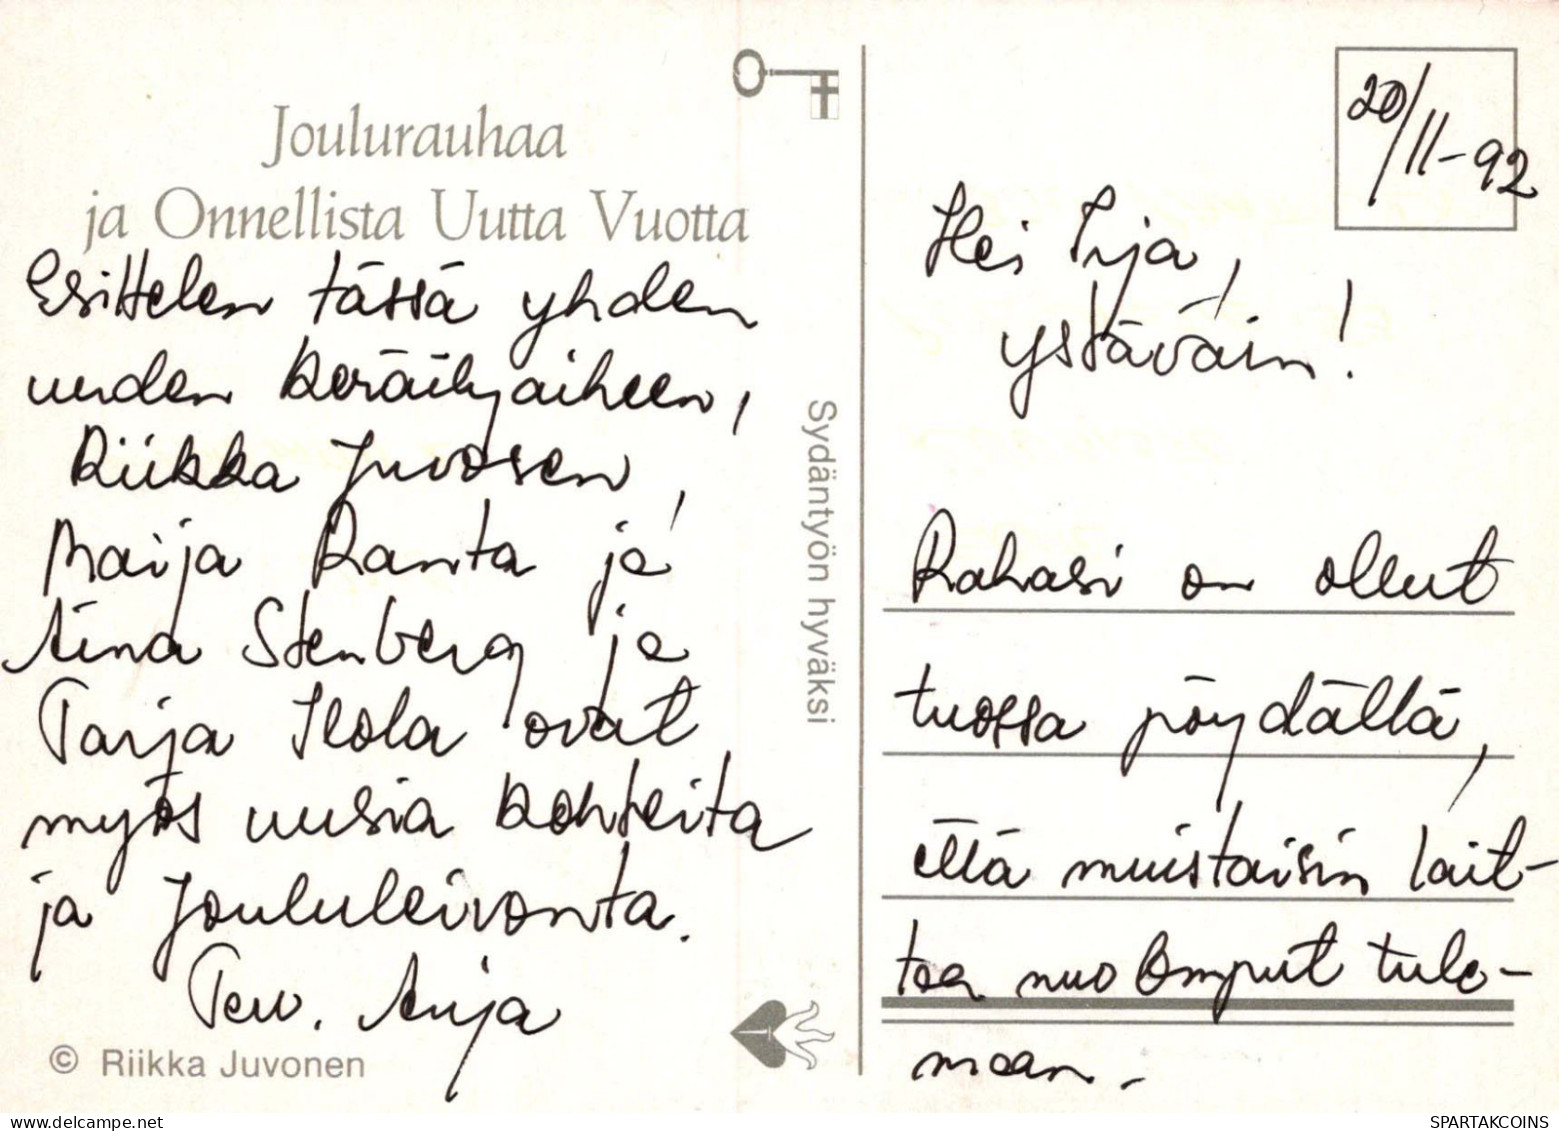 Joulurauhaa
ja Onnellista Uutta Vuotta
Esittelen tässä yhden
uuden keräilyaiheen,
Riikka Juvosen,
Maija Ranta ja
Aina Stenberg ja
Tarja Ilola ovat
myös uusia kohteita
ja Joululeivonta.
Terv. Anja
© Riikka Juvonen
Sydäntyön hyväksi
20/11-92
Hei Irja,
ystäväin!
Rahasi on ollut
tuossa pöydällä,
että muistaisin lait-
taa nuo omput tule-
maan.
delcampe.net
SPARTAKCOINS